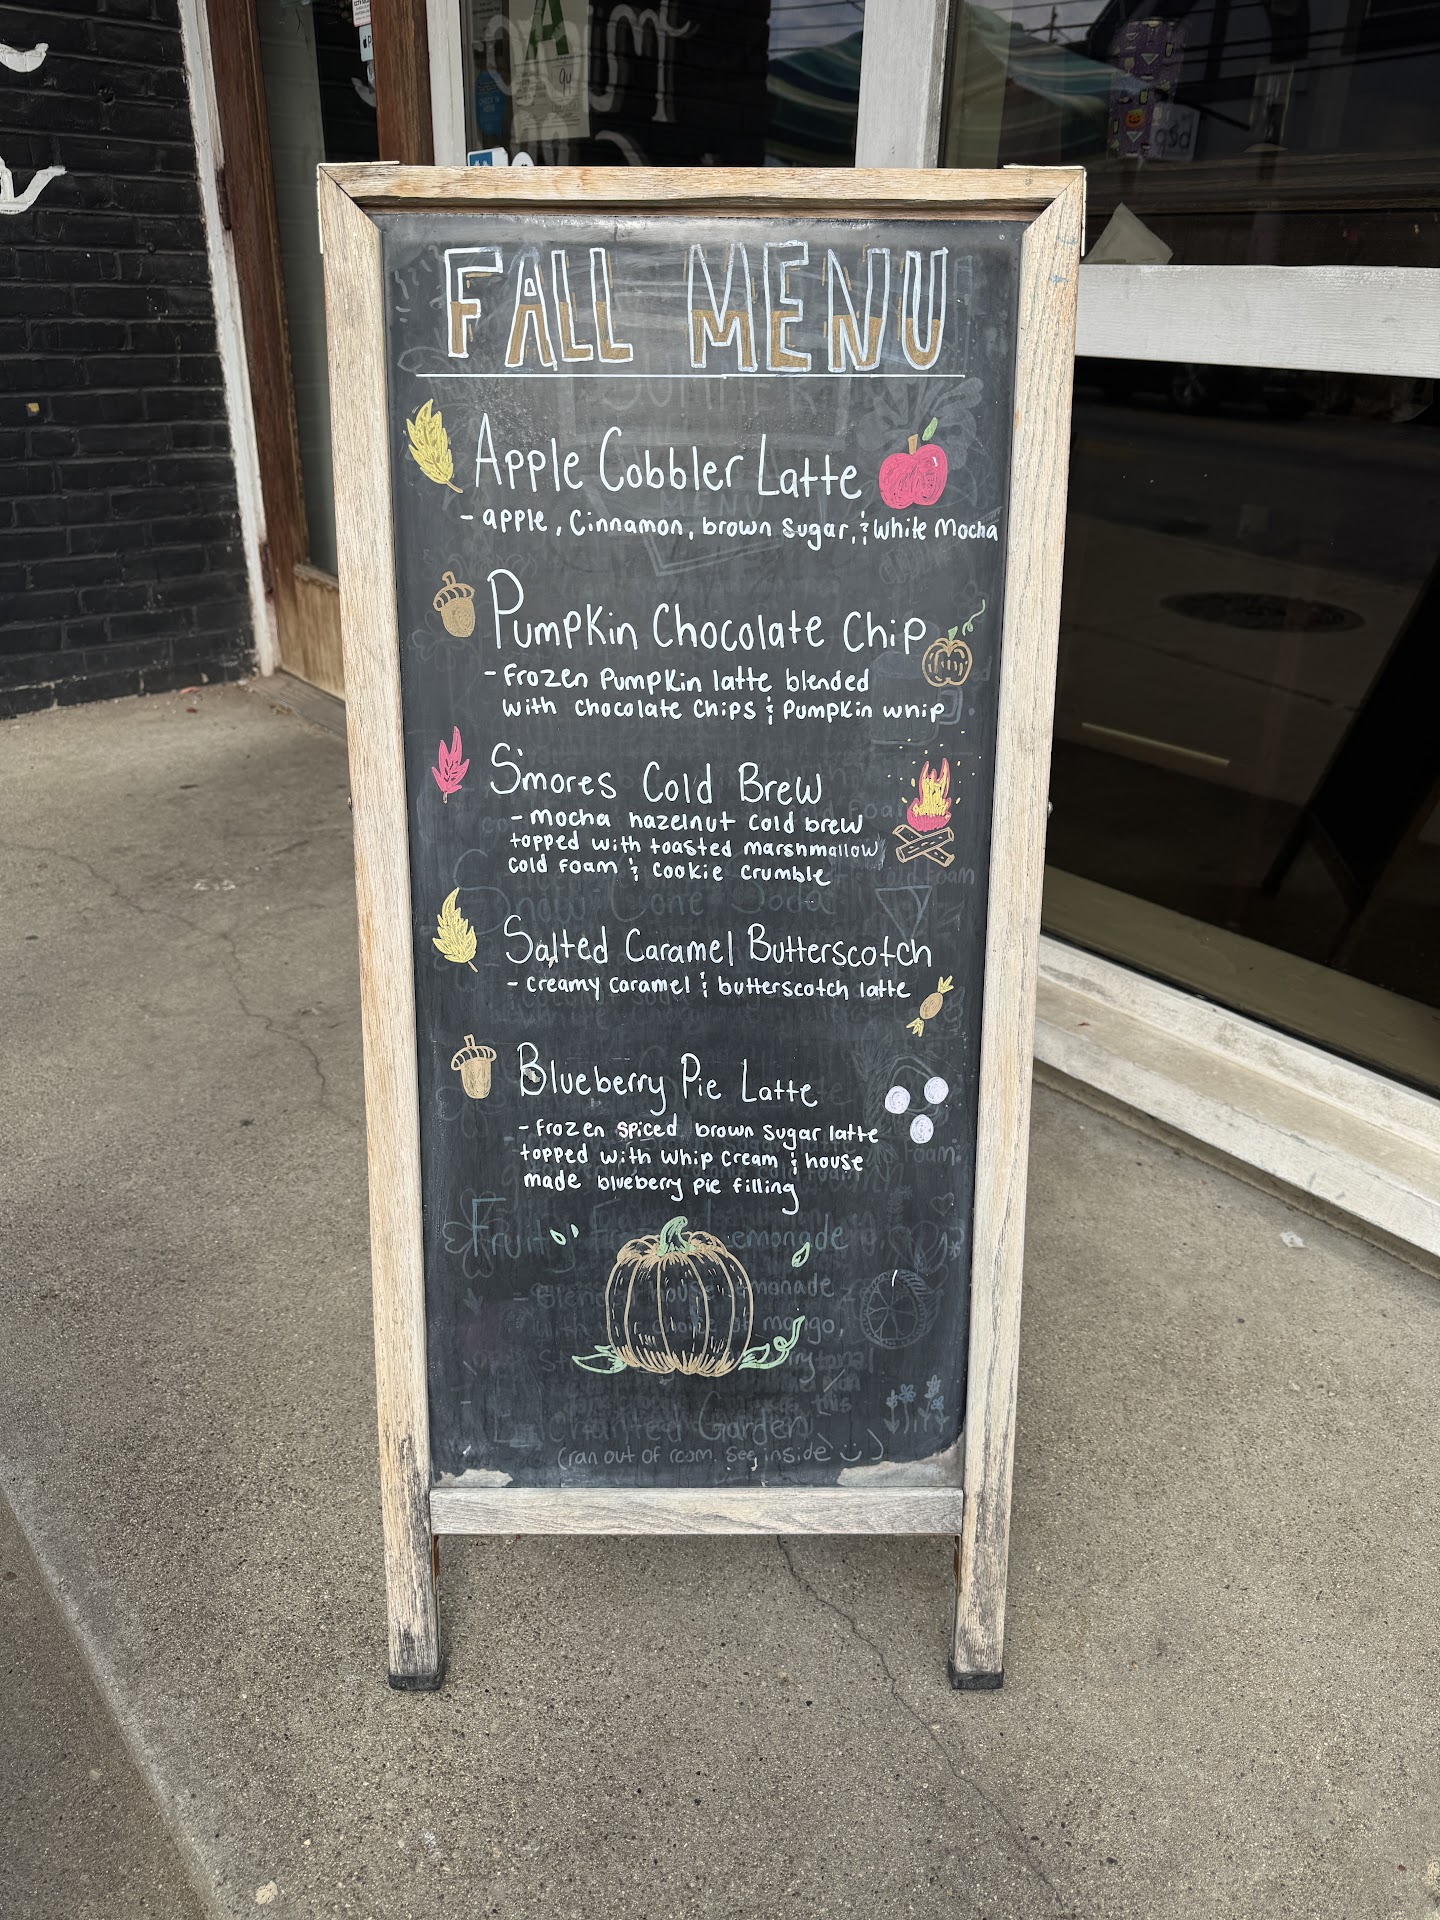 FALL MENU
SUMMER
MENU
Apple Cobbler Latte
- apple, Cinnamon, brown sugar, & white Mocha
Pumpkin Chocolate Chip
- Frozen Pumpkin latte blended
with chocolate chips & Pumpkin whip
S'mores Cold Brew
- mocha hazelnut cold brew
topped with toasted marshmallow
cold foam & cookie crumble
Snow Cone Soda
Salted Caramel Butterscotch
- creamy caramel & butterscotch latte
Blueberry Pie Latte
- Frozen spiced brown sugar latte
topped with whip cream & house
made blueberry pie filling
Lemonade
Enchanted Garden
(ran out of room. See inside)